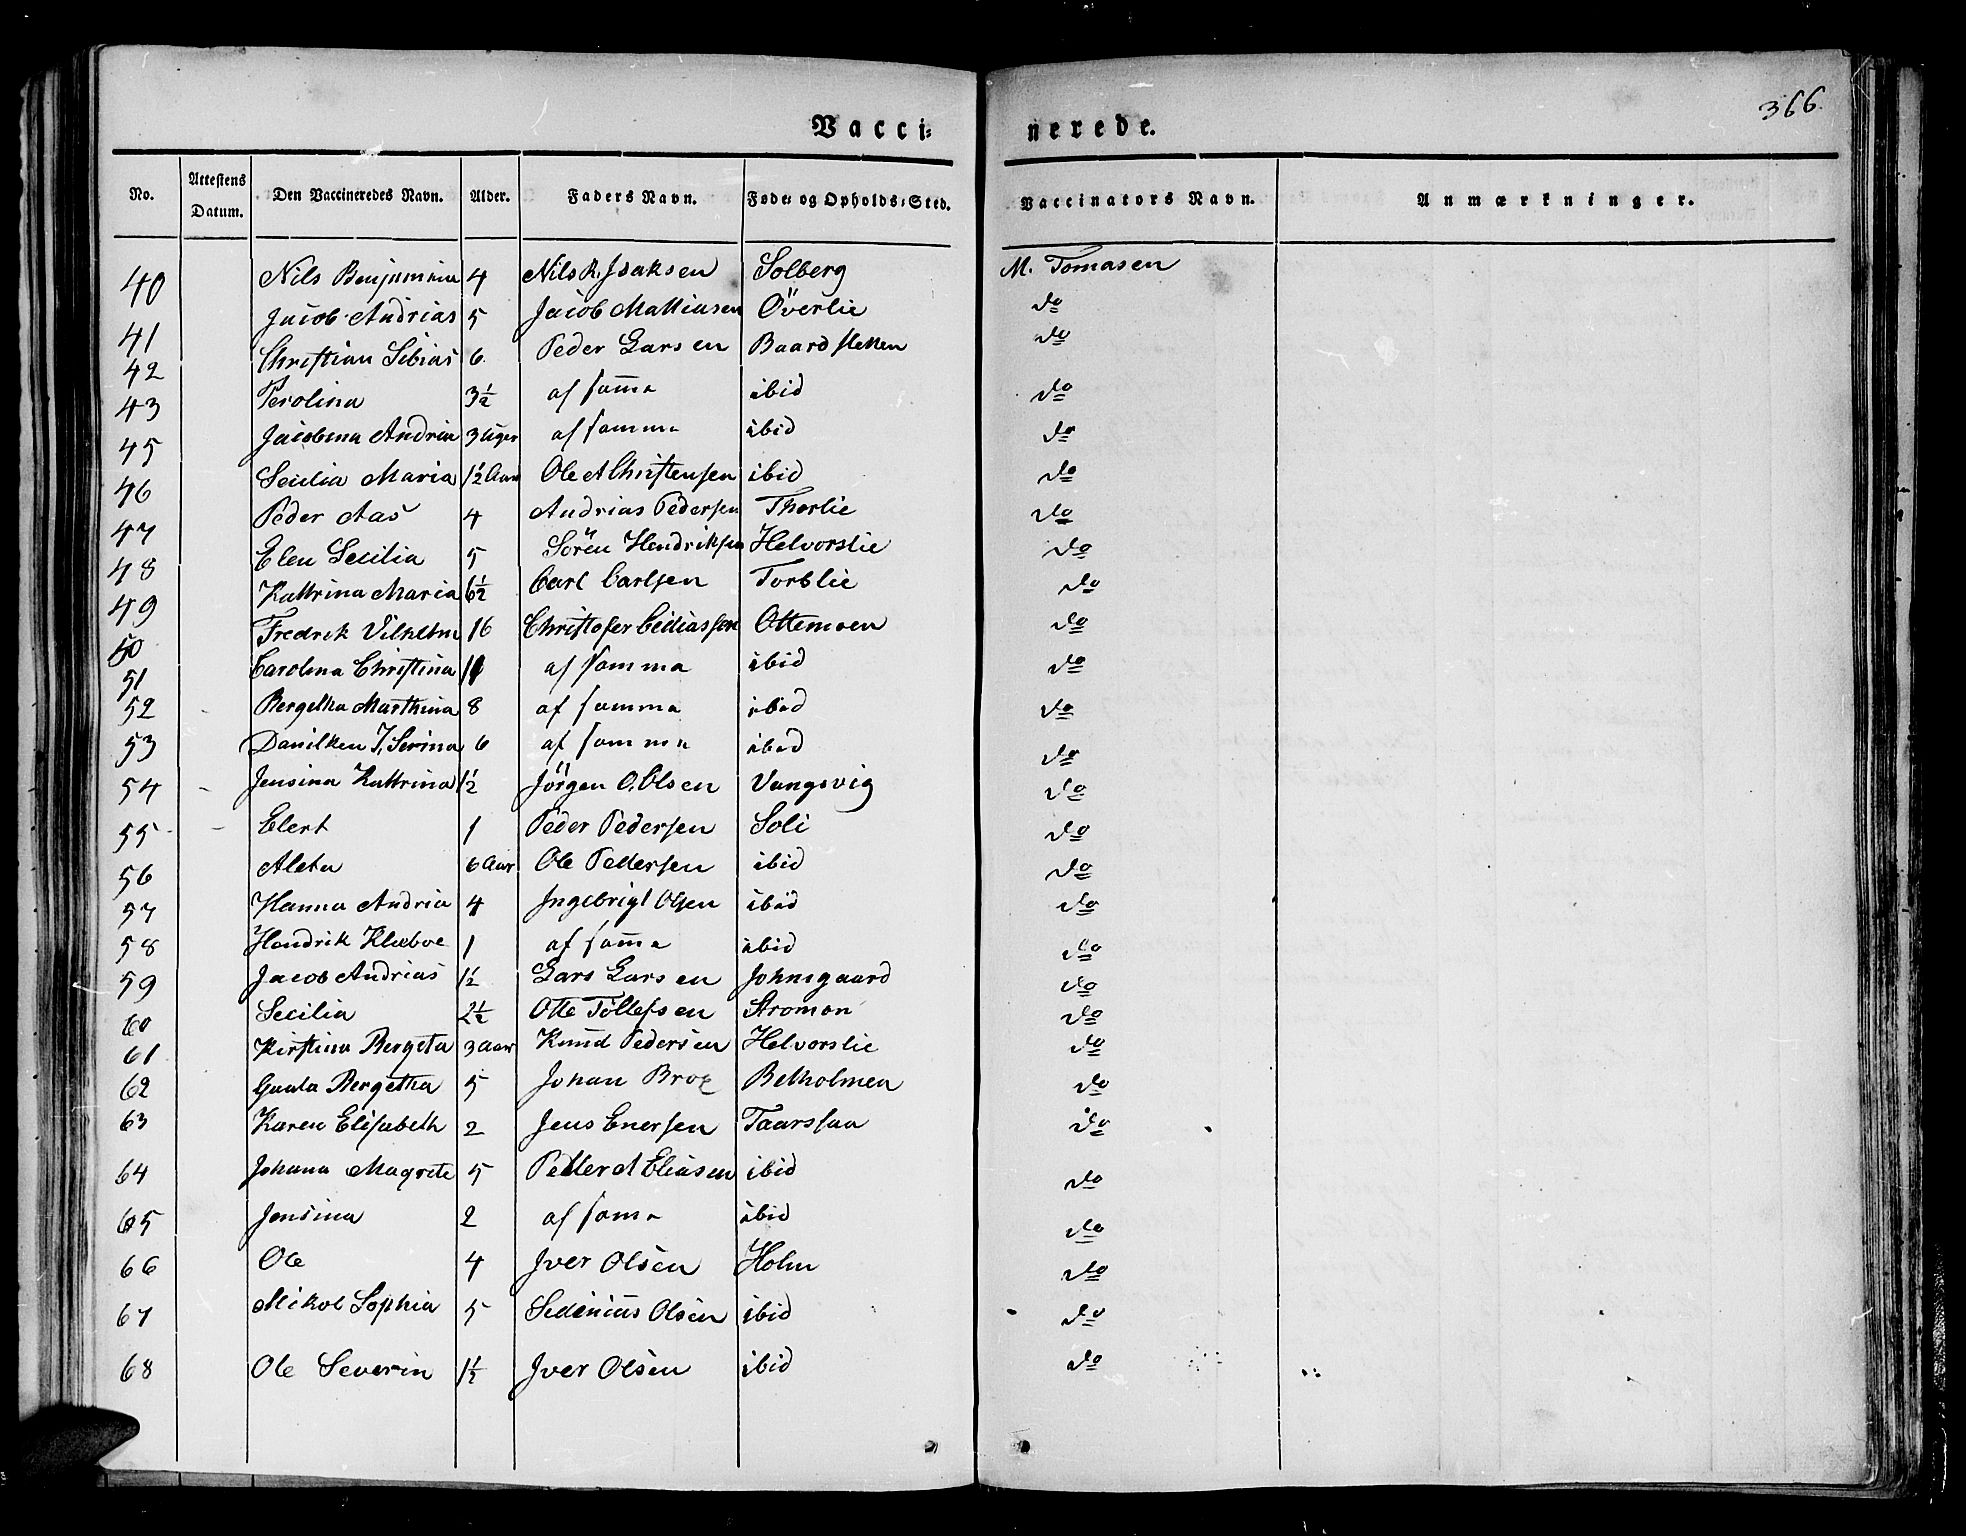 366.
Vacci= nerede.
No. Attestens Datum. Den Vaccineredes Navn. Alder. Faders Navn. Føde= og Opholds=Sted. Vaccinators Navn. Anmærkninger.
40 Nils Benjamin 4 Nils R. Isaksen Solberg M. Tomasen
41 Jacob Andrias 5 Jacob Mathiasen Överlie do
42 Christian Tobias 6 Peder Larsen Baardsletten do
43 Perolina 3½ af samma ibid do
45 Jacobina Andria 3 Uger af samma ibid do
46 Secilia Maria 1½ Aar Ole A Christensen ibid do
47 Peder Aas 4 Andrias Pedersen Thorlie do
48 Elen Secilia 5 Sören Hendriksen Helvorslie do
49 Kattrina Maria 6½ Carl Carlsen Torblie do
50 Fredrik Vilhelm 16 Christofer Ottemoen do
51 Carolina Christina 11 af samma ibid do
52 Bergetha Marthina 8 af samma ibid do
53 Danilken J. Serina 6 af samma ibid do
54 Jensina Kattrina 1½ Jörgen O. Olsen Vangsvig do
55 Elert 1 Peder Pedersen Soli do
56 Aleta 6 Aar Ole Pedersen ibid do
57 Hanna Andria 4 Ingebrigt Olsen ibid do
58 Hendrik Klæboe 1 af samma ibid do
59 Jacob Andrias 1½ Lars Larsen Johnsgaard do
60 Secilia 2½ Otte Tollefsen Stromon do
61 Kirstina Bergeta 3 Aar Knud Pedersen Helvorslie do
62 Bergetha 5 Johan Brox Betholmen do
63 Karen Elisabeth 2 Jens Enersen Taarssaa do
64 Johana Magrete 5 Petter A Eliasen ibid do
65 Jensina 2 af sama ibid do
66 Ole 4 Iver Olsen Holm do
67 Nikol Sophia 5 Sedenius Olsen ibid do
68 Ole Severin 1½ Iver Olsen ibid do